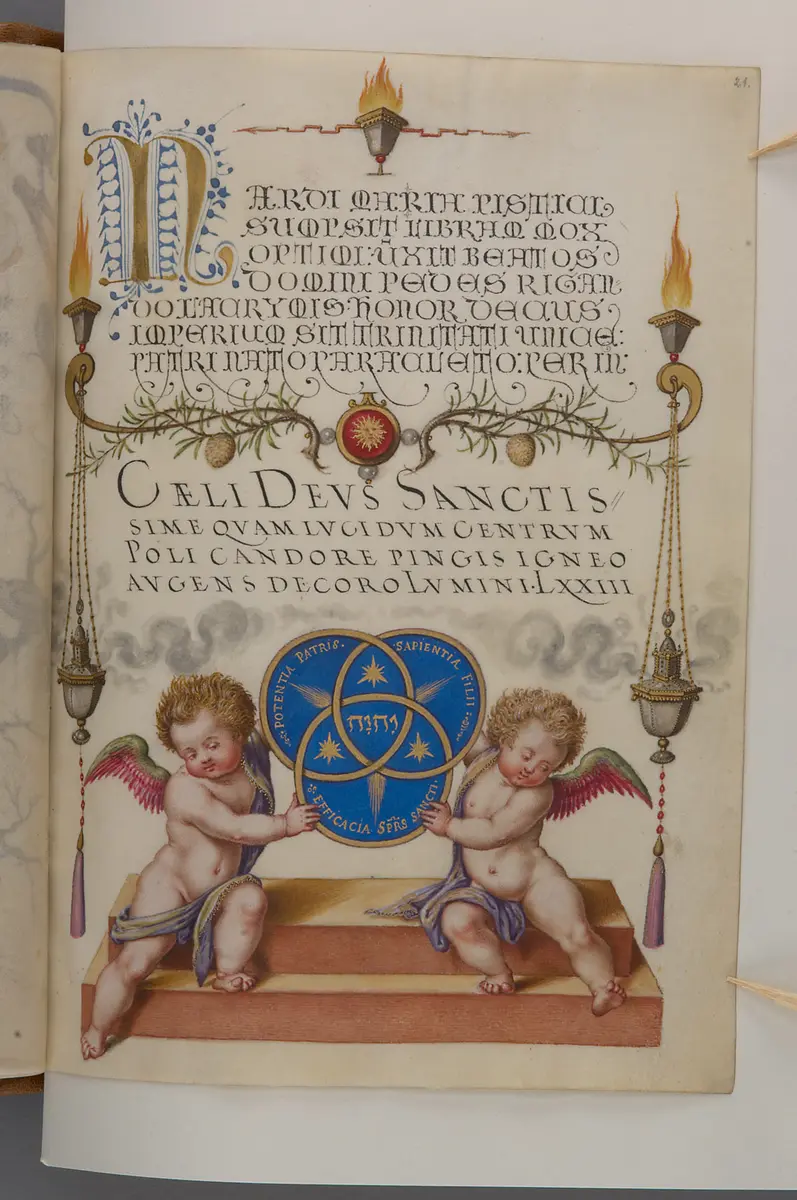 21.
NARDI MARIA PISTICI
SUMPSIT LIBRAM MOX
OPTIMI: UXIT BEATOS
DOMINI PEDES RIGAN
DO LACRYMIS: HONOR DECUS
IMPERIUM SIT TRINITATI UNICAE:
PATRI NATO PARACLETO: PER IN:
CÆLI DEVS SANCTIS//
SIME QVAM LVCIDVM CENTRVM
POLI CANDORE PINGIS IGNEO
AVGENS DECORO LVMINI·LXXIII
POTENTIA PATRIS·
·SAPIENTIA FILII
יהוה
EFFICACIA SPŪS SANCTI·